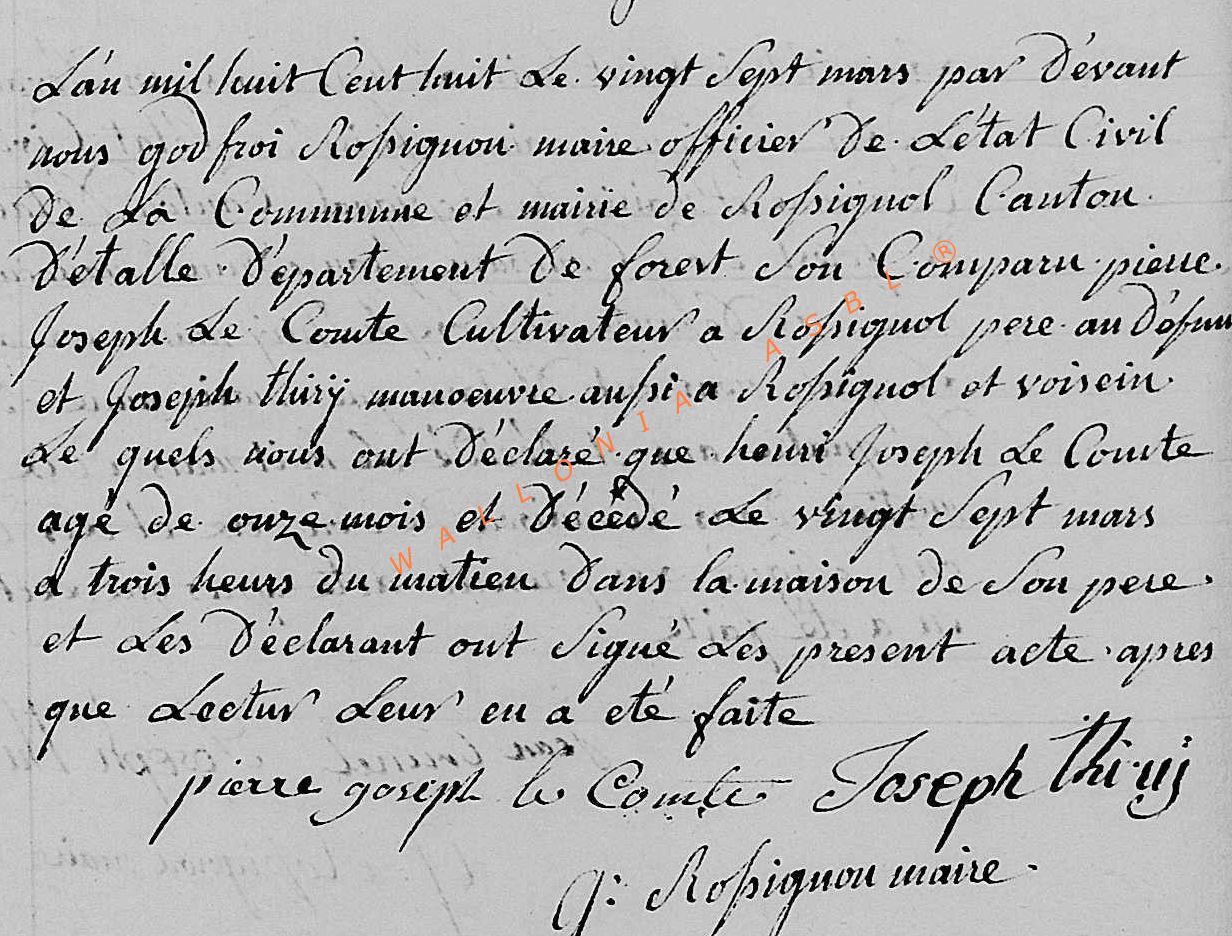 L'an mil huit Cent huit Le vingt Sept mars par Dévant
nous godfroi Rossignon maire officier De L'état Civil
De La Commune et mairie de Rossignol Canton
D'étalle Département De forest Son Comparu pierre
Joseph Le Comte Cultivateur a Rossignol pere au Défunt
et Joseph thirÿ manoeuvre aussi a Rossignol et voisein
Le quels nous ont Déclaré que henri Joseph Le Comte
agé de onze mois et Décédé Le vingt Sept mars
a trois heurs du matien Dans la maison de Son pere
et Les Déclarant ont Signé Les present acte apres
que Lectur Leur en a eté faite
pierre goseph le Comte Joseph thirij
g: Rossignon maire
WALLONIA ASBL ®